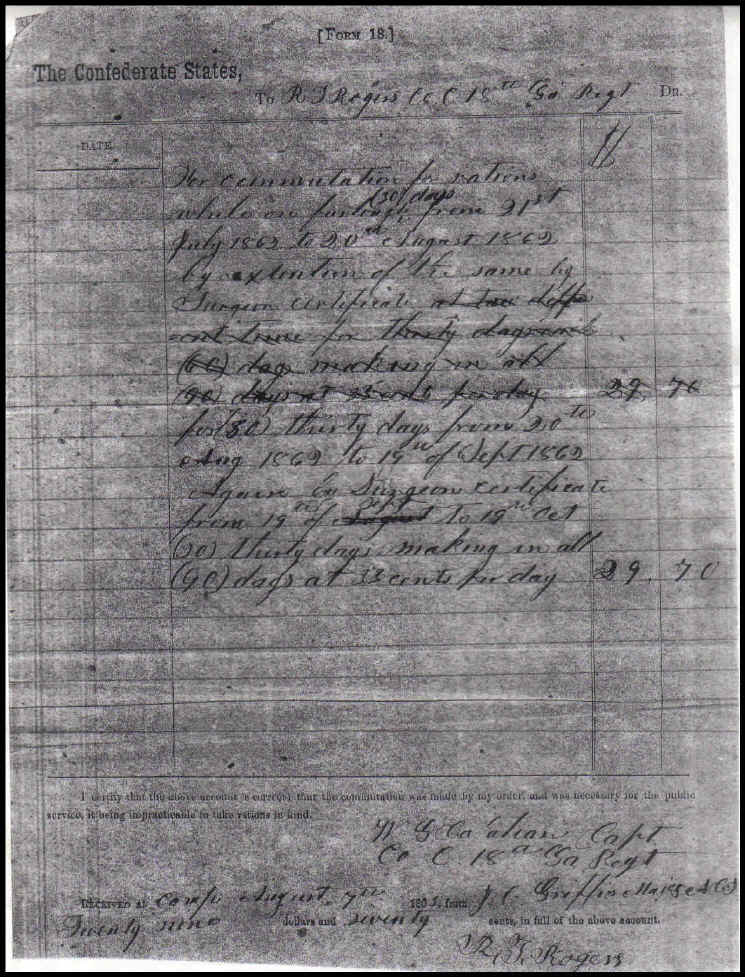 [FORM 18.]
The Confederate States,
To R T Rogers Co C 18th Ga Regt Dr.
DATE.
For commutation for rations
(30) days
while on furlough from 21st
July 1862 to 20th August 1862
by extention of the same by
Surgeon certificate at two diffr
ent time for thirty days each
(60) days making in all
(90) days at 33 cents per day 29. 70
for (30) thirty days from 20th
Aug 1862 to 19th of Sept 1862
Again by Surgeon certificate
Sept
from 19th of August to 19th Oct
(30) thirty days making in all
(90) days at 33 cents per day 29. 70
I certify that the above account is correct; that the commutation was made by my order, and was necessary for the public
service, it being impracticable to take rations in kind.
Capt
Co C 18th Ga Regt
RECEIVED at Camp August 7th 1863, from J. C. Griffin Maj &
Twenty nine dollars and seventy cents, in full of the above account.
R. T. Rogers